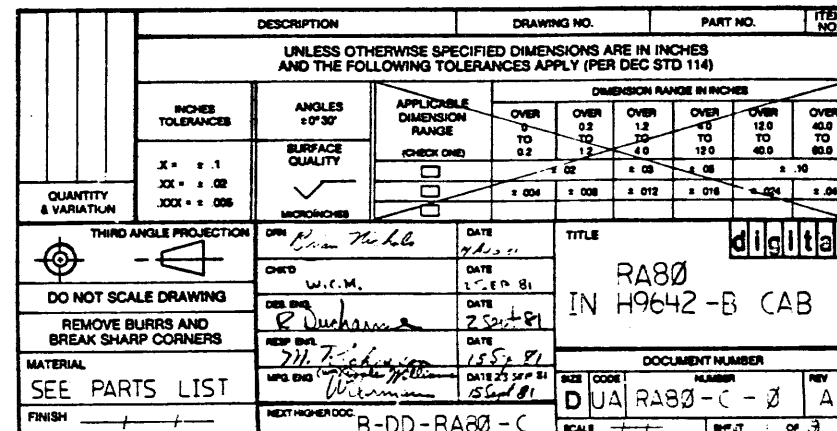 DESCRIPTION DRAWING NO. PART NO. ITEM NO.
UNLESS OTHERWISE SPECIFIED DIMENSIONS ARE IN INCHES
AND THE FOLLOWING TOLERANCES APPLY (PER DEC STD 114)
INCHES TOLERANCES
.X = ± .1
.XX = ± .02
.XXX = ± .005
ANGLES
± 0° 30'
SURFACE QUALITY
MICROINCHES
APPLICABLE DIMENSION RANGE
(CHECK ONE)
DIMENSION RANGE IN INCHES
OVER OVER OVER OVER OVER OVER
0 0.2 1.2 4.0 12.0 40.0
TO TO TO TO TO TO
0.2 1.2 4.0 12.0 40.0 60.0
± .02 ± .03 ± .05 ± .10
± .004 ± .008 ± .012 ± .016 ± .024 ± .04
QUANTITY
& VARIATION
THIRD ANGLE PROJECTION
DO NOT SCALE DRAWING
REMOVE BURRS AND
BREAK SHARP CORNERS
MATERIAL
SEE PARTS LIST
FINISH
DRN Brian Nichols DATE
CHK'D W.C.M. DATE 81
DES. ENG. R Ducharme DATE 2 Sept 81
RESP ENG. M. T. DATE 15 Sep 81
MFG. ENG Williams DATE 23 SEP 81
15 Sept 81
NEXT HIGHER DOC.
B-DD-RA80-C
TITLE
digital
RA80
IN H9642-B CAB
DOCUMENT NUMBER
SIZE CODE NUMBER REV
D UA RA80-C-0 A
SCALE SHEET 1 OF 3